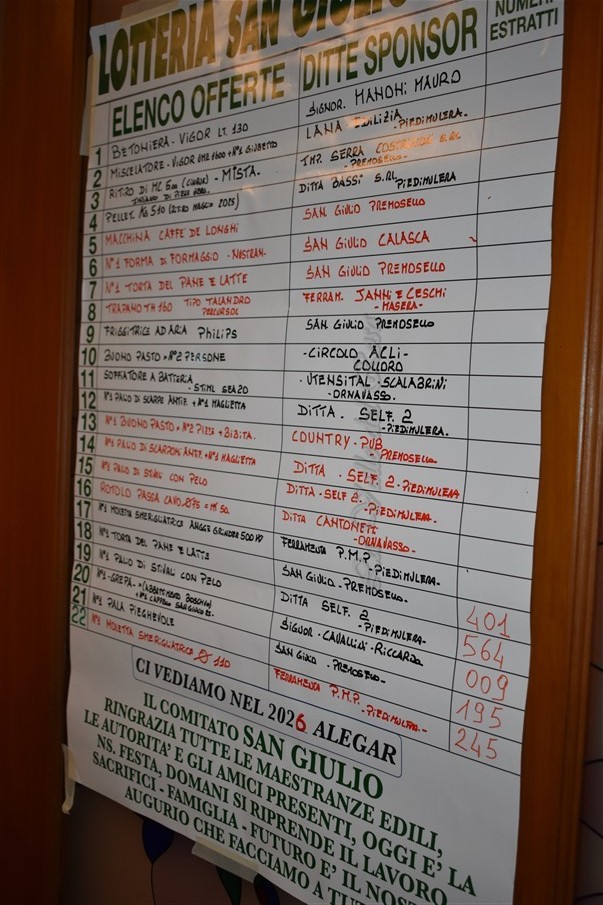 LOTTERIA SAN GIULIO
ELENCO OFFERTE DITTE SPONSOR NUMERI ESTRATTI
1 BETONIERA - VIGOR LT. 130 SIGNOR. MANONI MAURO
2 MISCELATORE - VIGOR UMR 1600 + N°1 GIUBETTO LANA EDILIZIA - PIEDIMULERA.
3 RITIRO DI MC 500 - MISTA. IMP. SERRA COSTRUZIONI S.RL - PREMOSELLO -
4 PELLET KG 510 (RITIRO MAGGIO 2025) DITTA BASSI S.RL PIEDIMULERA
5 MACCHINA CAFFE DE LONGHI SAN GIULIO PREMOSELLO
6 N°1 FORMA DI FORMAGGIO - NOSTRAN. SAN GIULIO CALASCA
7 N°1 TORTA DEL PANE E LATTE SAN GIULIO PREMOSELLO
8 TRAPANO TH 160 TIPO TALANDRO FERRAM. JANNI E CESCHI - MASERA -
9 FRIGGITRICE AD ARIA PHILIPS SAN GIULIO PREMOSELLO
10 BUONO PASTO N°2 PERSONE - CIRCOLO ACLI - COLLORO
11 SOFFIATORE A BATTERIA - STIHL GEA20 - UTENSITAL - SCALABRINI - ORNAVASSO.
12 N°1 PAIO DI SCARPE ANTIF. + N°1 MAGLIETTA DITTA. SELF. 2 - PIEDIMULERA.
13 N°1 BUONO PASTO N°2 PIZZE + BIBITA. COUNTRY - PUB - PREMOSELLO
14 N°1 PAIO DI SCARPONI ANTIF. + N°1 MAGLIETTA DITTA - SELF 2 - PIEDIMULERA
15 N°1 PAIO DI STIVALI CON PELO DITTA - SELF 2 - PIEDIMULERA.
16 ROTOLO PASSA CAVO Ø75 = mt 50 DITTA CANTONETI - ORNAVASSO -
17 N°1 MOLETTA SMERIGLIATRICE ANGLE GRINDER 500 FERRAMENTA P.M.P. - PIEDIMULERA.
18 N°1 TORTA DEL PANE E LATTE SAN GIULIO - PREMOSELLO.
19 N°1 PAIO DI STIVALI CON PELO DITTA SELF. 2 - PIEDIMULERA - 401
20 N°1 - GREPA - (ABBATTIMENTO BOSCHIVO) + N°1 CAPPELLO SAN GIULIO SIGNOR - CAVALLINI - RICCARDO 564
21 N°1 PALA PIEGHEVOLE SAN GIULIO - PREMOSELLO - 009
22 N°1 MOLETTA SMERIGLIATRICE Ø 110 FERRAMENTA P.M.P. - PIEDIMULERA - 195
245
CI VEDIAMO NEL 2026 ALEGAR
IL COMITATO SAN GIULIO
RINGRAZIA TUTTE LE MAESTRANZE EDILI,
LE AUTORITA' E GLI AMICI PRESENTI, OGGI E' LA
NS. FESTA, DOMANI SI RIPRENDE IL LAVORO
SACRIFICI - FAMIGLIA - FUTURO E' IL NOST
AUGURIO CHE FACCIAMO A TUT